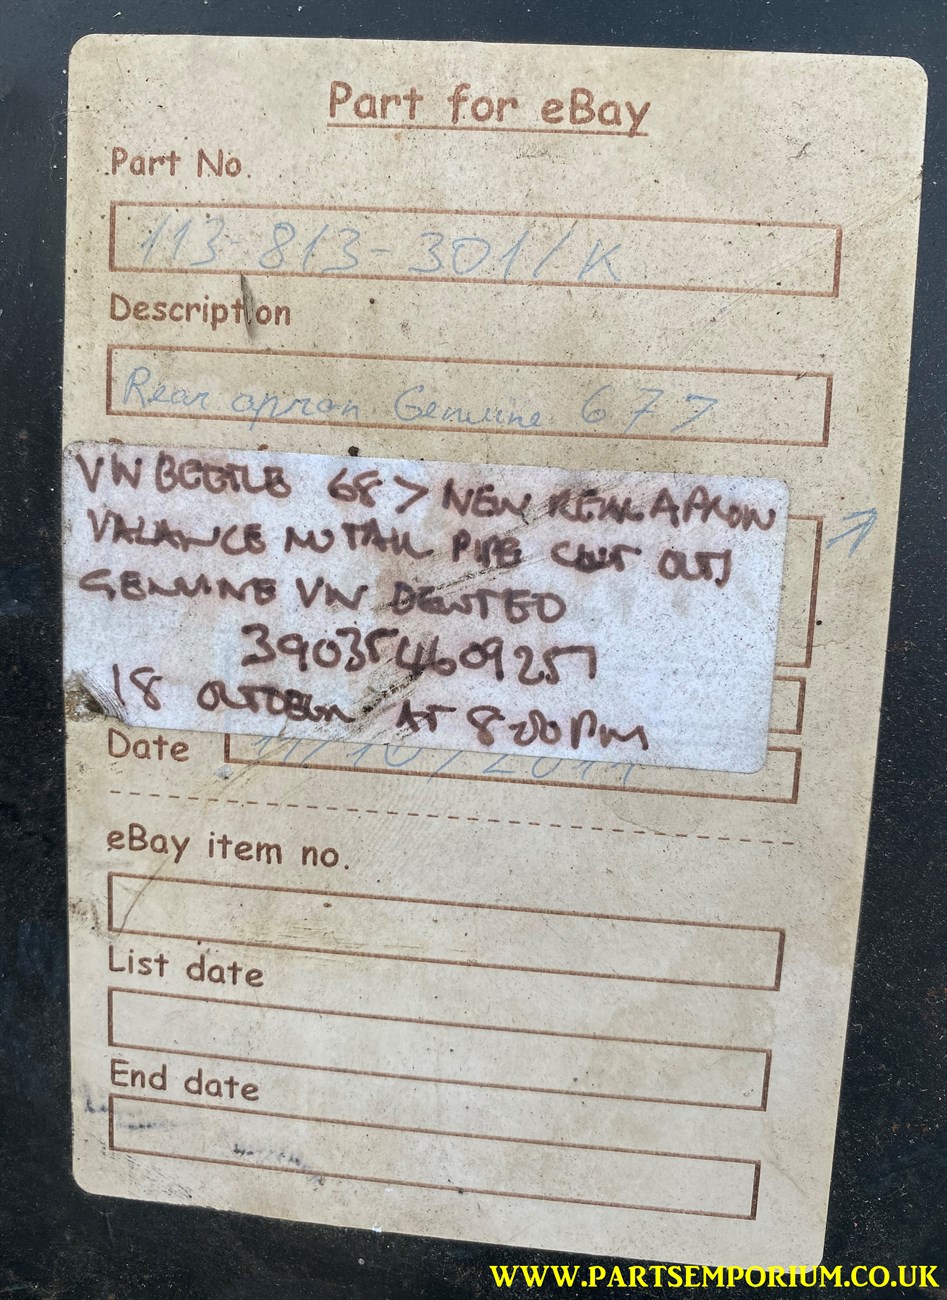 Part for eBay
Part No
113-813-301/K
Description
Rear apron Genuine 677
VW BEETLE 68 > NEW REAR APRON
VALANCE NO TAIL PIPE CUT OUTS
GENUINE VW DENTED
390354609257
18 OCTOBER AT 8:00PM
Date
11/10/201
eBay item no.
List date
End date
WWW.PARTSEMPORIUM.CO.UK